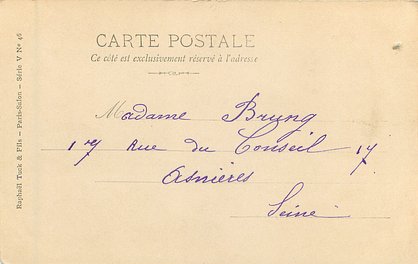 CARTE POSTALE
Ce côté est exclusivement réservé à l'adresse
Madame Brung
17 Rue du Conseil 17
Asnières
Seine
Raphaël Tuck & Fils — Paris-Salon — Série V Nº 46